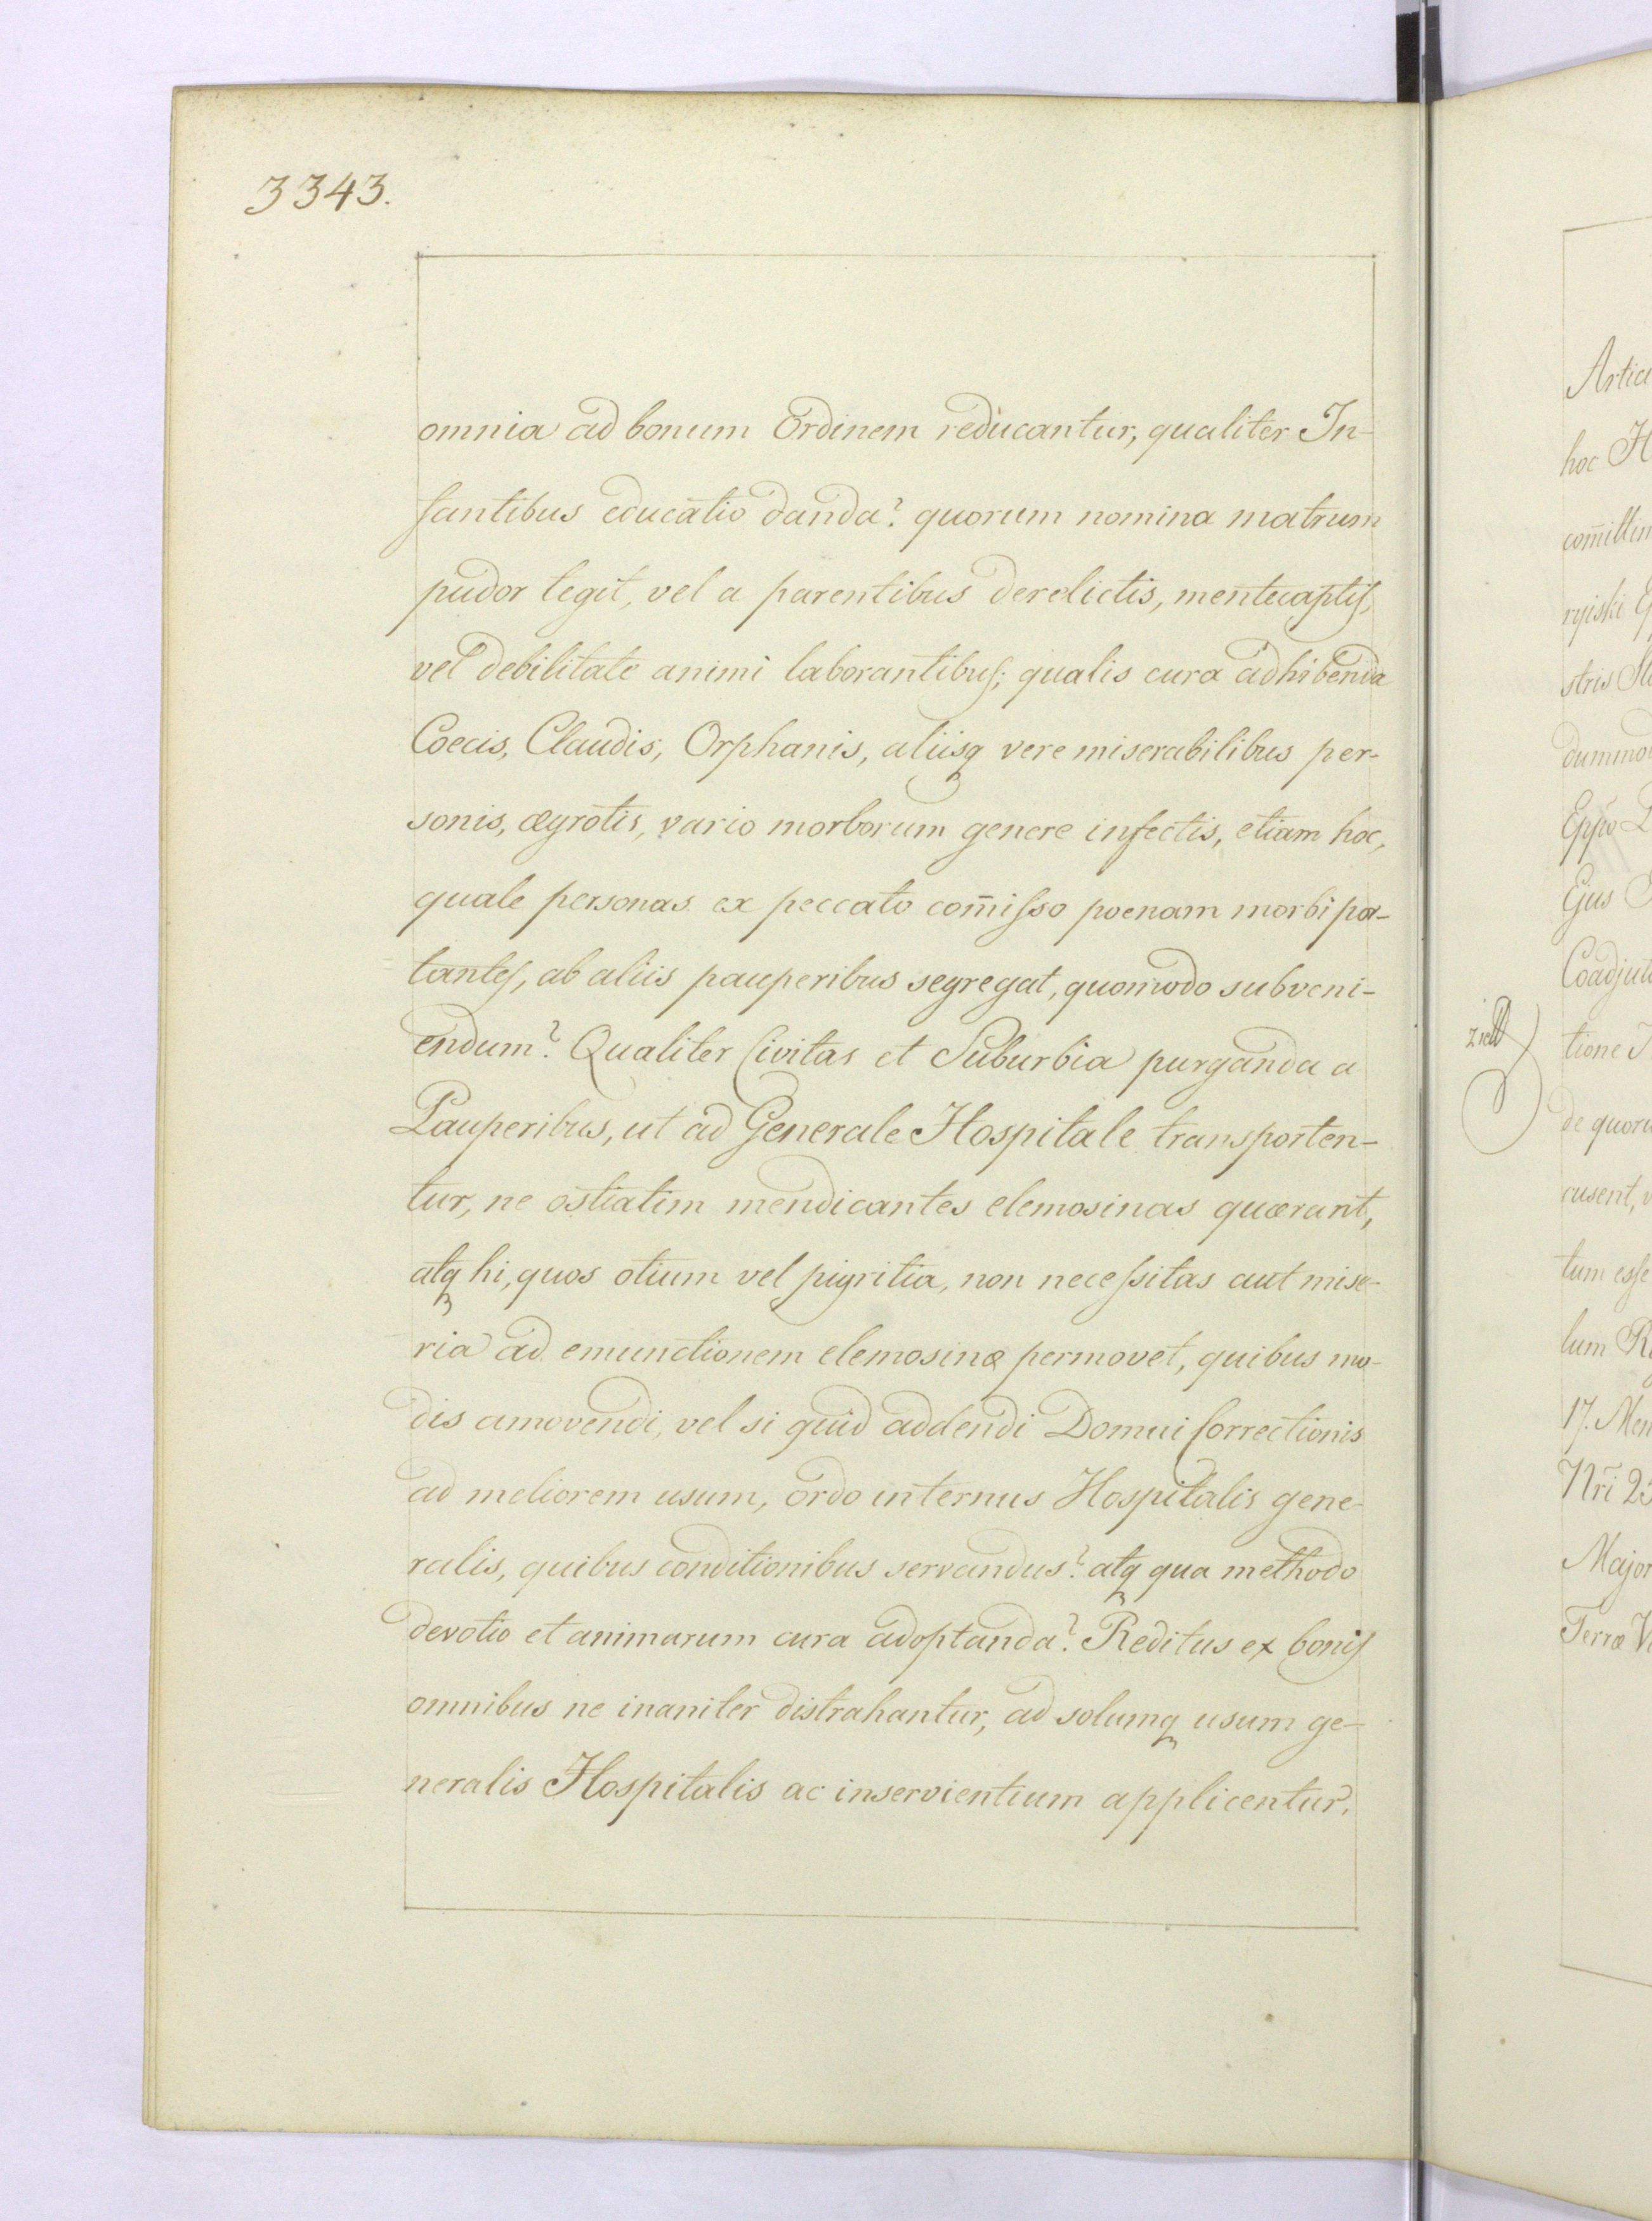 3343.
omnia ad bonum Ordinem reducantur, qualiter In-
fantibus educatio danda? quorum nomina matrum
pudor tegit, vel a parentibus derelictis, mentecaptis,
vel debilitate animi laborantibus; qualis cura adhibenda
Coecis, Claudis, Orphanis, aliisq vere miserabilibus per-
sonis, ægrotis, vario morborum genere infectis, etiam hoc,
quale personas ex peccato com̄isso poenam morbi por-
tantes, ab aliis pauperibus segregat, quomodo subveni-
endum? Qualiter Civitas et Suburbia purganda a
Pauperibus, ut ad Generale Hospitale transporten-
tur, ne ostiatim mendicantes elemosinas quærant,
atq hi, quos otium vel pigritia, non necessitas aut mise-
ria ad emunctionem elemosinæ permovet, quibus mo-
dis amovendi, vel si quid addendi Domui Correctionis
ad meliorem usum, ordo internus Hospitalis gene-
ralis, quibus conditionibus servandus? atq qua methodo
devotio et animarum cura adoptanda? Reditus ex bonis
omnibus ne inaniter distrahantur, ad solumq usum ge-
neralis Hospitalis ac inservientium applicentur.
hoc
ryiski
stris
Ejus
tione
de
cusent,
tum esse
lum
17.
Nri 23
Major
Terræ